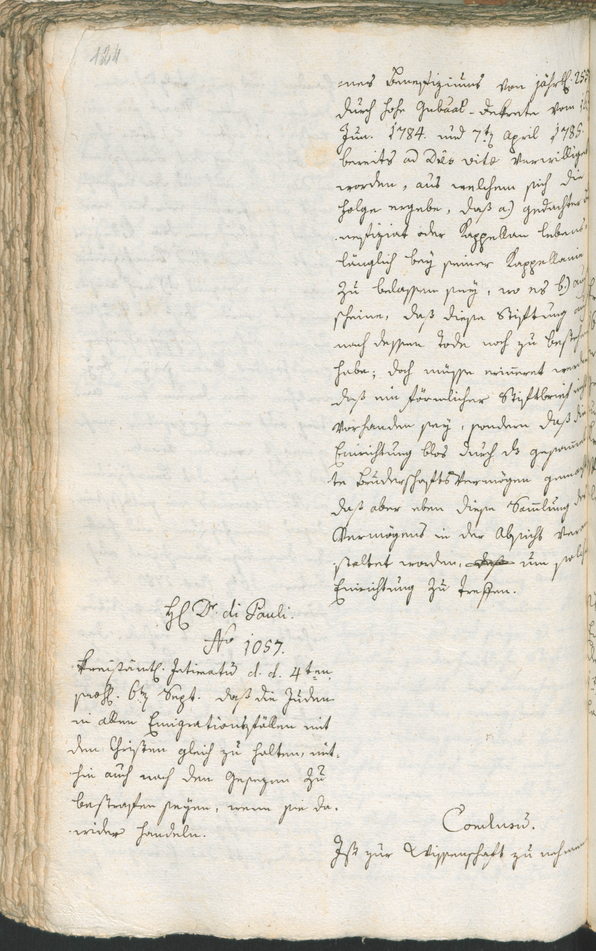 124
eines Benefiziums von jährl. 255
durch hohe Gubäal-Dekrete vom
Jun. 1784. und 7t April 1785.
bereits ad dies vitæ verwilliget
worden, aus welchem sich die
Folge ergebe, daß a) gedachter
nefiziat oder Kappellan lebens
länglich bey seiner Kappellanie
zu belassen sey, wo es b)
scheine, daß diese Stiftung
nach dessen Tode noch zu bestehen
habe; doch müsse erinneret werden
daß ein förmlicher Stiftbrief nicht
vorhanden sey, sondern daß die
Einrichtung blos durch ds gesamm
te Bruderschafts Vermögen gemacht
daß aber eben diese Samlung des
Vermögens in der Absicht veran
staltet worden, um solche
Einrichtung zu treffen.
H Dr. di Pauli.
No 1057.
Kreisämtl. Intimatū d. d. 4ten
praes. 6t Sept. daß die Juden
in allen Emigrationsfällen mit
den Christen gleich zu halten, mit-
hin auch nach den Gesezen zu
bestrafen seyen, wenn sie da-
wider handeln.
Conclusū.
Ist zur Wissenschaft zu nehmen